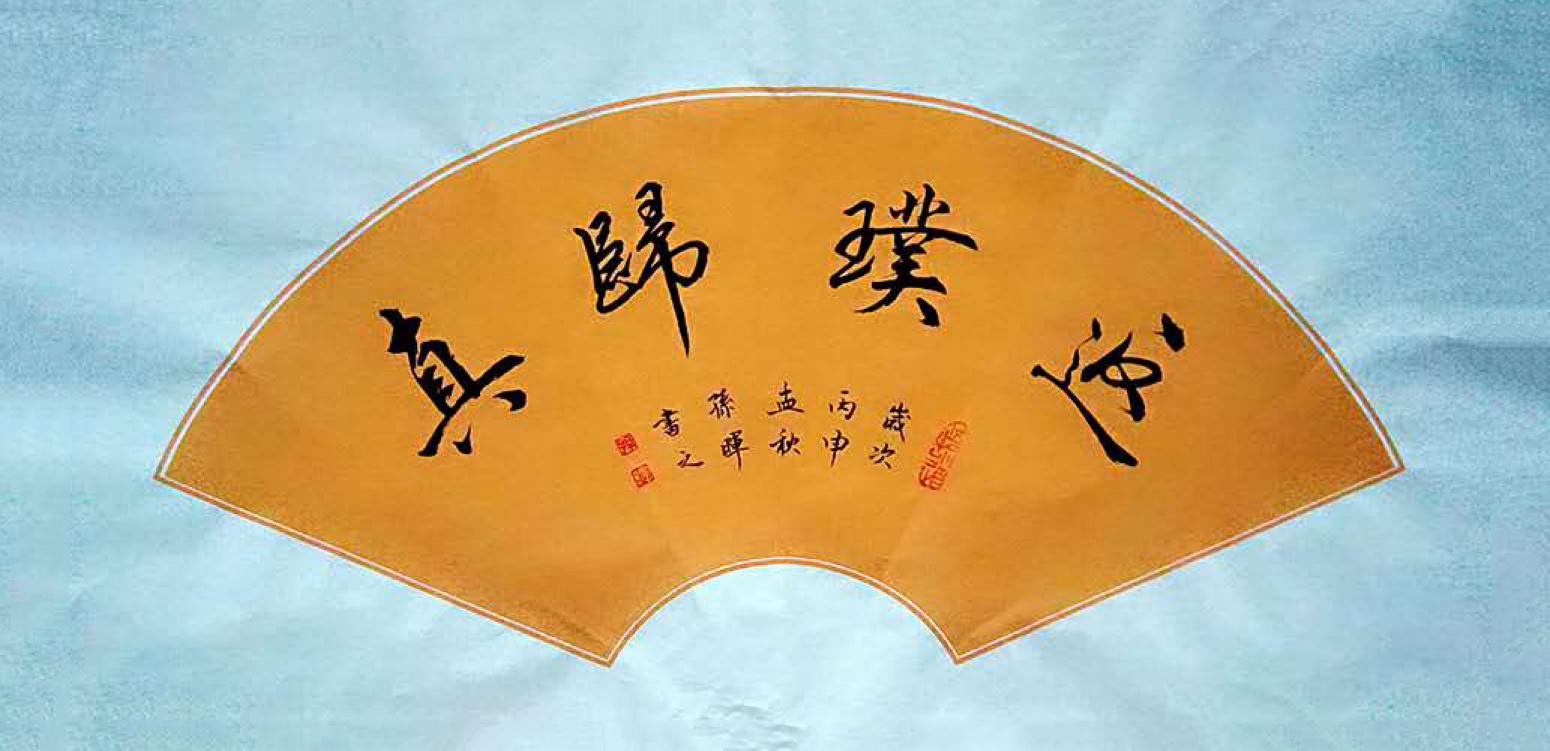 返璞歸真
歲次
丙申
孟秋
孫暉
書之